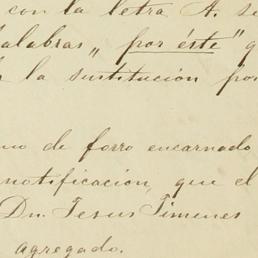 con la letra A. se
alabras „ por éste " q
la sustitución por
de forro encarnado
notificación, que el
Dn. Jesus Jimenes
agregado.